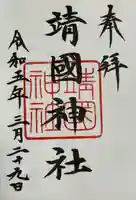 奉拝
靖國神社
令和五年三月二十九日
靖国
神社